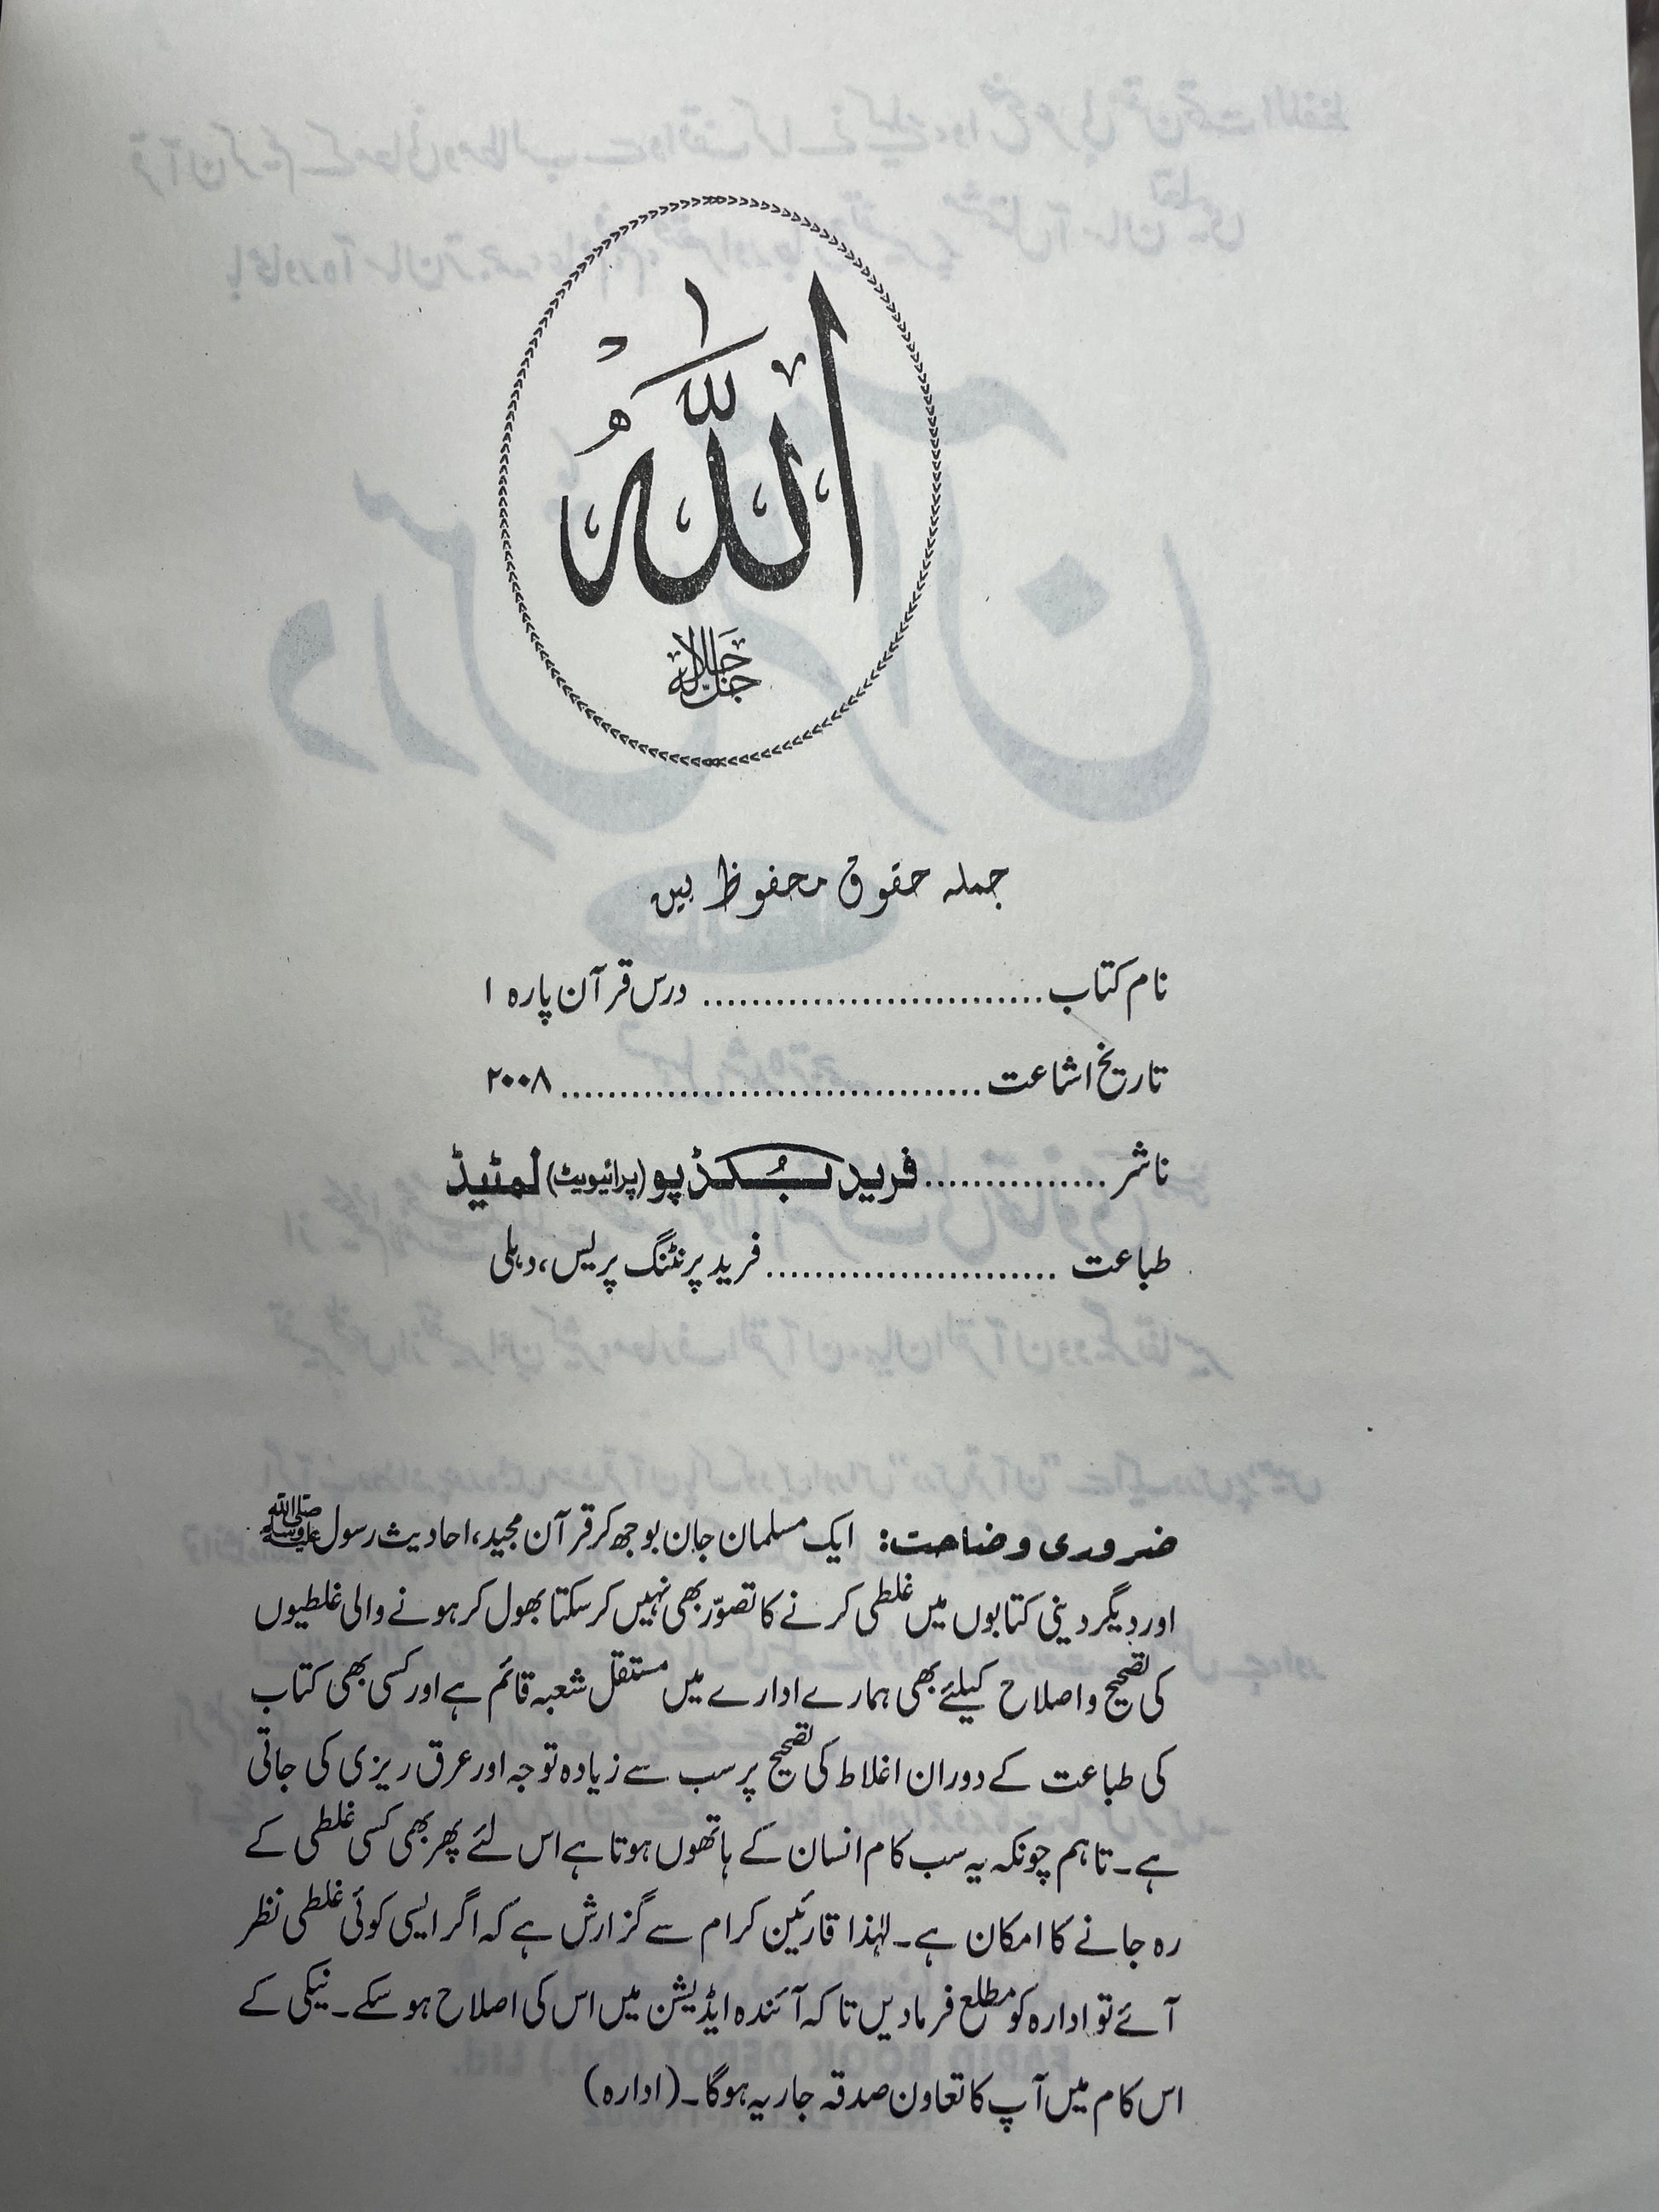 اللّٰهُ
جل جلاله
جملہ حقوق محفوظ ہیں
نام کتاب ............................ درس قرآن پارہ ۱
تاریخ اشاعت .................................. ۲۰۰۸
ناشر ............... فرید بکڈپو (پرائیویٹ) لمٹیڈ
طباعت ........................ فرید پرنٹنگ پریس، دہلی
ضروری وضاحت: ایک مسلمان جان بوجھ کر قرآن مجید، احادیث رسول ﷺ
اور دیگر دینی کتابوں میں غلطی کرنے کا تصوّر بھی نہیں کر سکتا بھول کر ہونے والی غلطیوں
کی تصحیح و اصلاح کیلئے بھی ہمارے ادارے میں مستقل شعبہ قائم ہے اور کسی بھی کتاب
کی طباعت کے دوران اغلاط کی تصحیح پر سب سے زیادہ توجہ اور عرق ریزی کی جاتی
ہے۔ تاہم چونکہ یہ سب کام انسان کے ہاتھوں ہوتا ہے اس لئے پھر بھی کسی غلطی کے
رہ جانے کا امکان ہے۔ لہٰذا قارئین کرام سے گزارش ہے کہ اگر ایسی کوئی غلطی نظر
آئے تو ادارہ کو مطلع فرمادیں تاکہ آئندہ ایڈیشن میں اس کی اصلاح ہو سکے۔ نیکی کے
اس کام میں آپ کا تعاون صدقہ جاریہ ہوگا۔ (ادارہ)